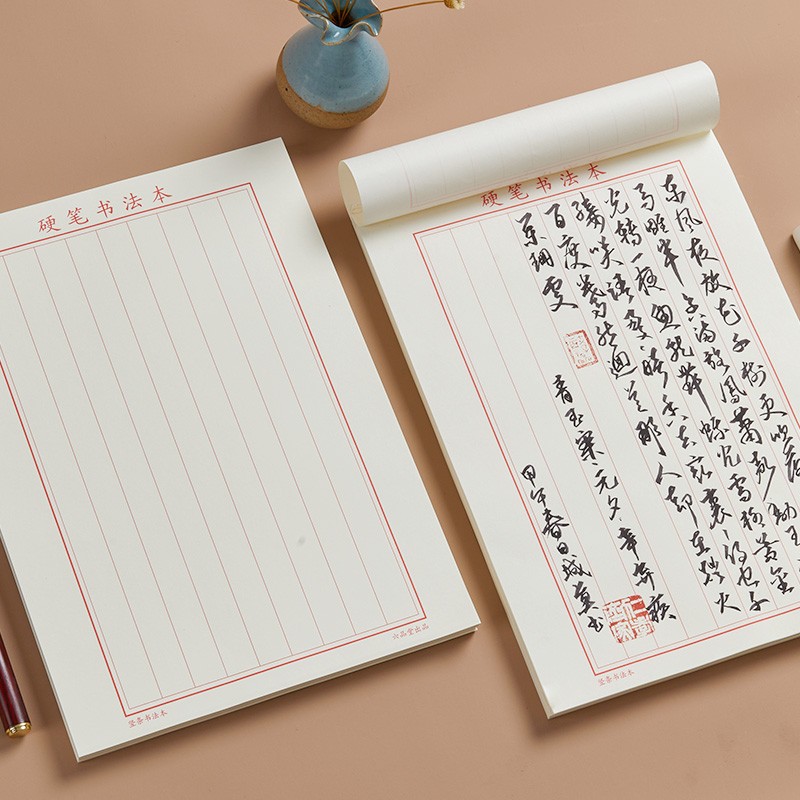 硬笔书法本
竖条书法本
六品堂出品
硬笔书法本
东风夜放花千树更吹落
马雕车香满路凤箫声动玉
光转一夜鱼龙舞蛾儿雪柳黄金
缕笑语盈盈暗香去众里寻他千
百度蓦然回首那人却在灯火
阑珊处
青玉案·元夕·辛弃疾
甲午春日
竖条书法本